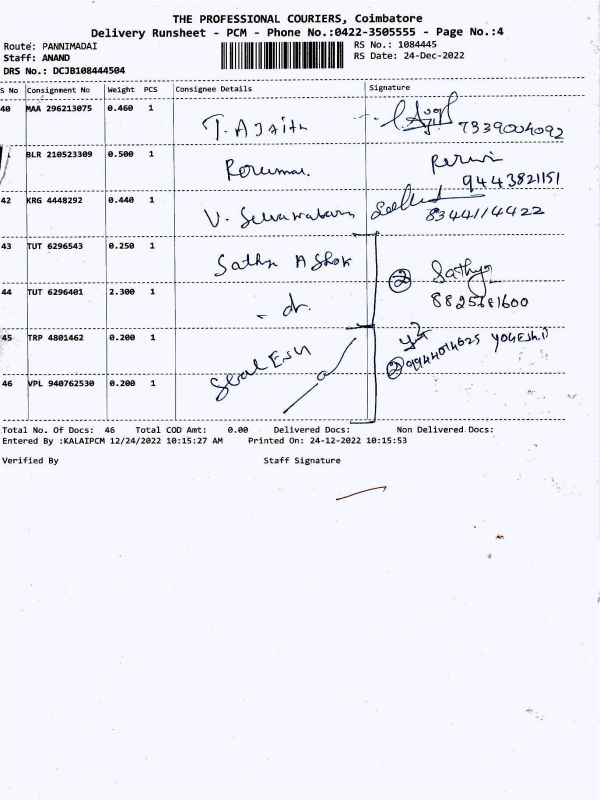 THE PROFESSIONAL COURIERS, Coimbatore
Delivery Runsheet - PCM - Phone No.:0422-3505555 - Page No.:4
Route: PANNIMADAI
RS No.: 1084445
Staff: ANAND
RS Date: 24-Dec-2022
DRS No.: DCJB108444504
S No Consignment No Weight PCS Consignee Details Signature
40 MAA 296213075 0.460 1
T. AJaith 7339004092
BLR 210523309 0.500 1
9443821151
42 KRG 4448292 0.440 1
V. 8344114422
43 TUT 6296543 0.250 1
Sathy Ashok 2 Sathya
44 TUT 6296401 2.300 1
- dr.
45 TRP 4801462 0.200 1
2 9944014025 YOGESH.D
46 VPL 940762530 0.200 1
Total No. Of Docs: 46 Total COD Amt: 0.00 Delivered Docs: Non Delivered Docs:
Entered By :KALAIPCM 12/24/2022 10:15:27 AM Printed On: 24-12-2022 10:15:53
Verified By Staff Signature